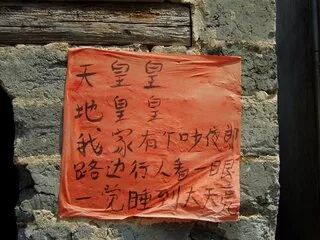 天皇皇
地皇皇
我家有个吵夜郎
路边行人看一眼
一觉睡到大天亮